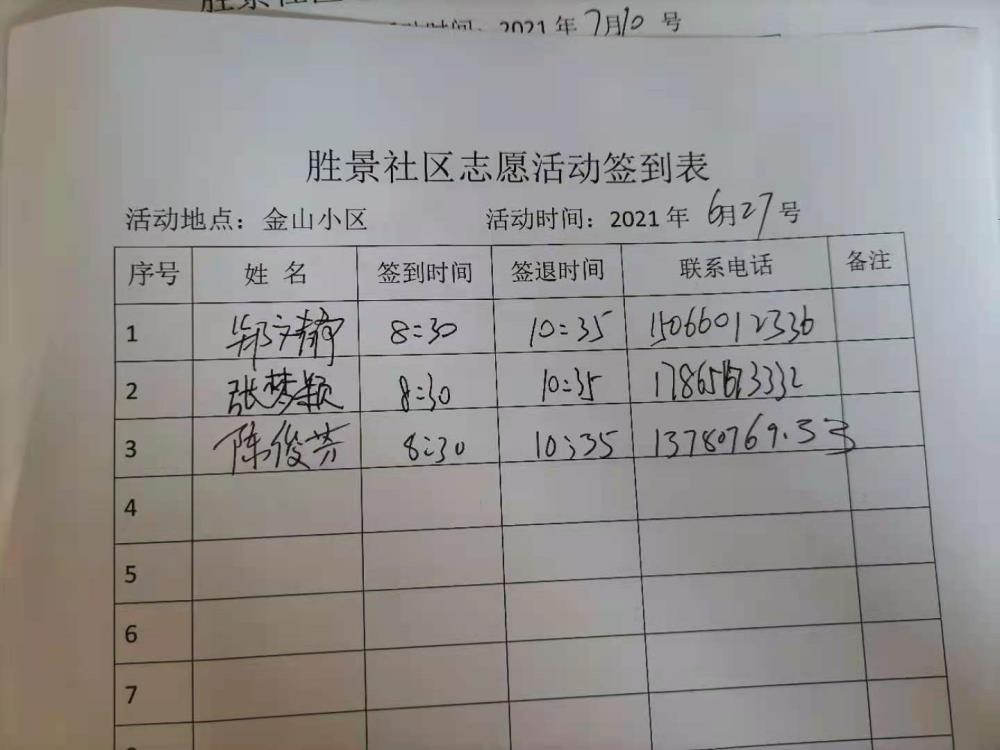 胜景社区
2021年7月10号
胜景社区志愿活动签到表
活动地点：金山小区 活动时间：2021年6月27号
序号 姓名 签到时间 签退时间 联系电话 备注
1 郑文静 8:30 10:35 15066012336
2 张梦颖 8:30 10:35
3 陈俊芳 8:30 10:35
4
5
6
7